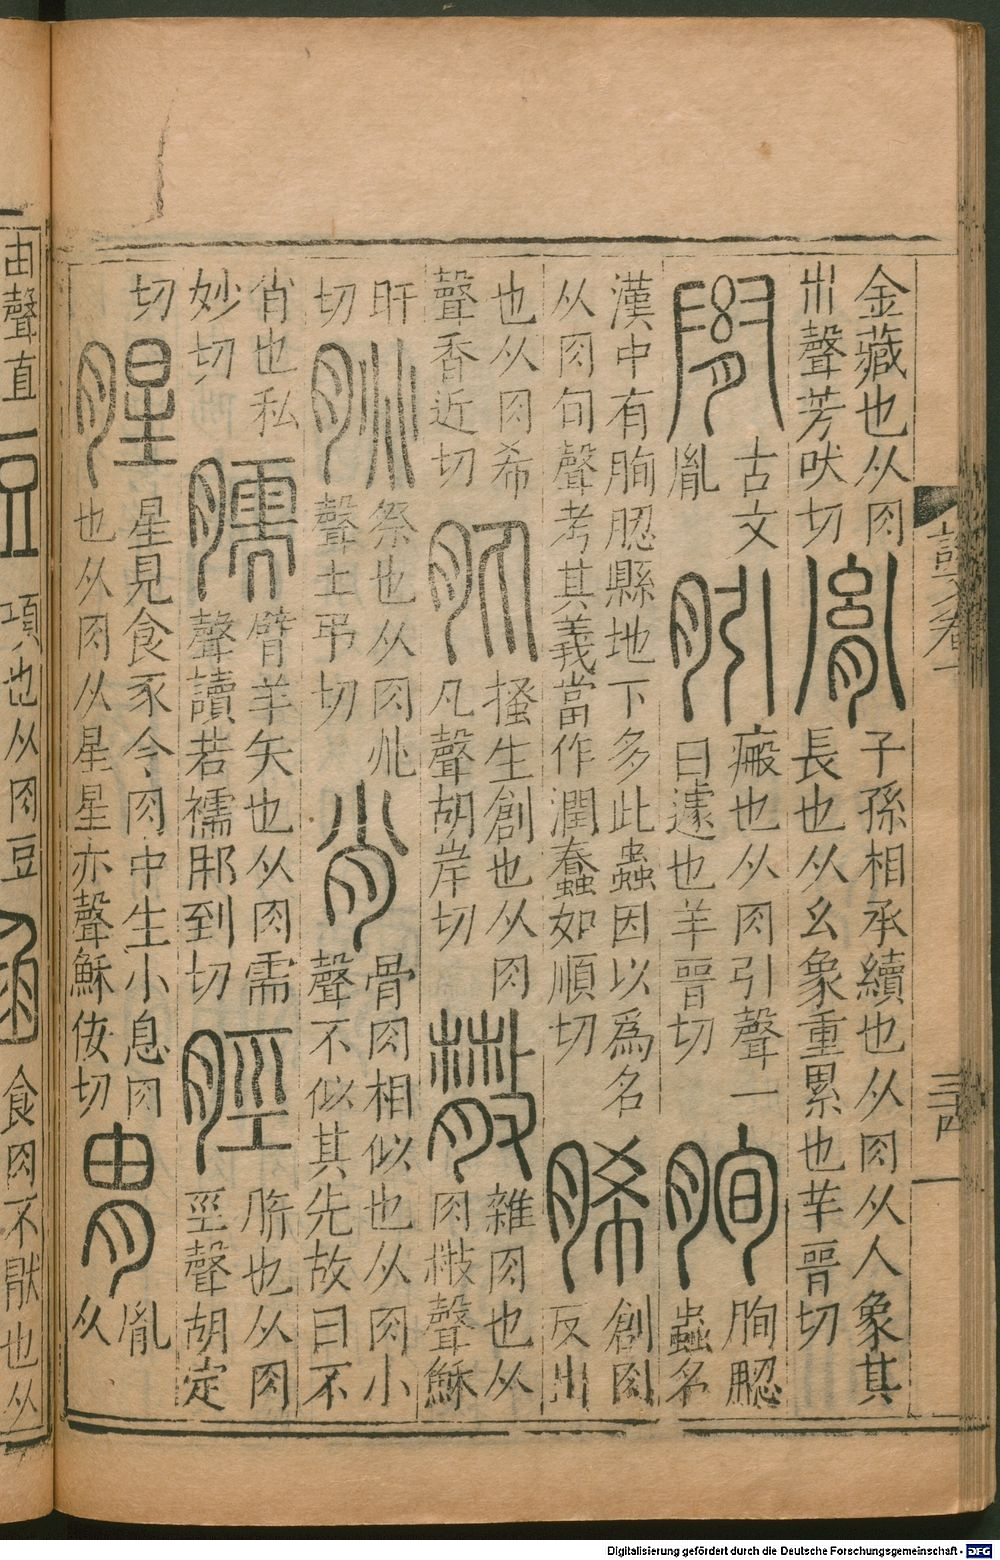 金藏也从肉巿聲芳吠切 胤 子孫相承續也从肉从人象其長也从幺象重累也羊晉切
古文胤 䏖 瘢也从肉引聲一曰遽也羊晉切 朐 朐䏰蟲名
漢中有朐䏰縣地下多此蟲因以爲名从肉句聲考其義當作潤蠢如順切 脪 創肉反出
也从肉希聲香近切 肒 搔生創也从肉凡聲胡岸切 㪔 雜肉也从肉㪔聲穌
旰切 脁 祭也从肉兆聲土弔切 肖 骨肉相似也从肉小聲不似其先故曰不
肖也私妙切 臑 臂羊矢也从肉需聲讀若襦那到切 脛 胻也从肉巠聲胡定
切 腥 星見食豕令肉中生小息肉也从肉从星星亦聲穌佞切 胄 胤也从
說文卷
三四
由聲直 項也从肉豆 食肉不猒也从
Digitalisierung gefördert durch die Deutsche Forschungsgemeinschaft - DFG